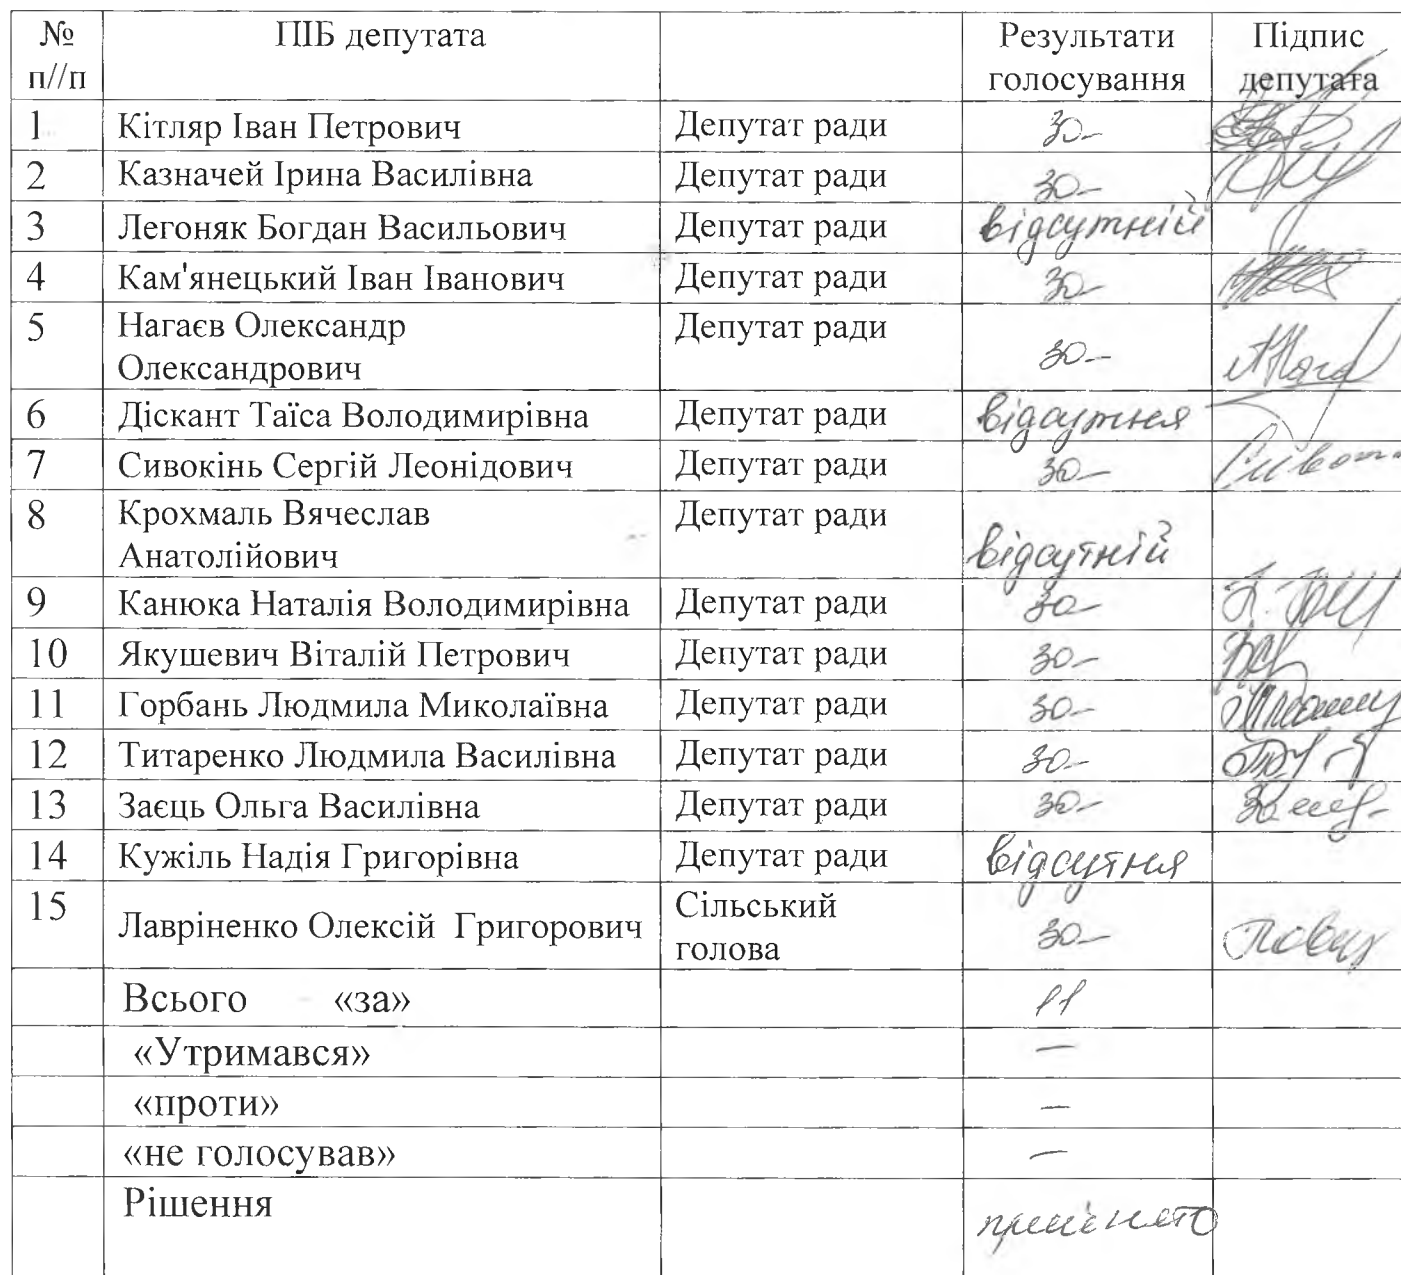 № ПІБ депутата Результати Підпис
п//п голосування депутата
1 Кітляр Іван Петрович Депутат ради за
2 Казначей Ірина Василівна Депутат ради за
3 Легоняк Богдан Васильович Депутат ради відсутній
4 Кам'янецький Іван Іванович Депутат ради за
5 Нагаєв Олександр Депутат ради за
Олександрович
6 Діскант Таїса Володимирівна Депутат ради відсутня
7 Сивокінь Сергій Леонідович Депутат ради за
8 Крохмаль Вячеслав Депутат ради відсутній
Анатолійович
9 Канюка Наталія Володимирівна Депутат ради за
10 Якушевич Віталій Петрович Депутат ради за
11 Горбань Людмила Миколаївна Депутат ради за
12 Титаренко Людмила Василівна Депутат ради за
13 Заєць Ольга Василівна Депутат ради за
14 Кужіль Надія Григорівна Депутат ради відсутня
15 Лавріненко Олексій Григорович Сільський за
голова
Всього «за» 11
«Утримався» —
«проти» —
«не голосував» —
Рішення